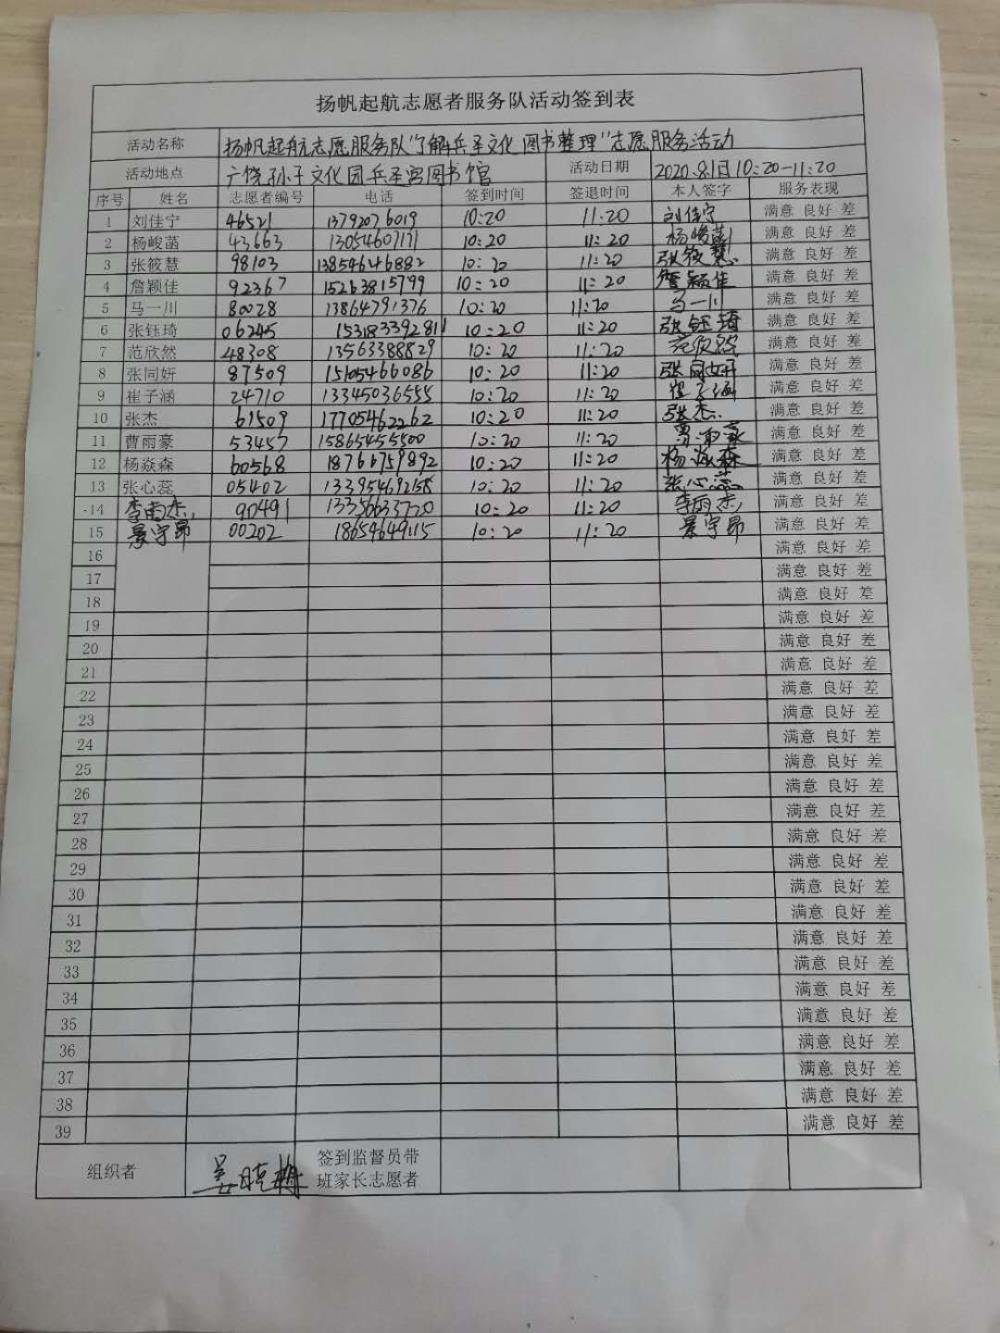 扬帆起航志愿者服务队活动签到表
活动名称 扬帆起航志愿服务队"了解兵圣文化 图书整理"志愿服务活动
活动地点 广饶孙子文化园兵圣宫图书馆 活动日期 2020.8.1日10:20-11:20
序号 姓名 志愿者编号 电话 签到时间 签退时间 本人签字 服务表现
1 刘佳宁 46521 13792076019 10:20 11:20 刘佳宁 满意 良好 差
2 杨峻菡 43663 13054607171 10:20 11:20 杨峻菡 满意 良好 差
3 张筱慧 98103 13854646882 10:20 11:20 张筱慧 满意 良好 差
4 詹颖佳 92367 15263815799 10:20 11:20 詹颖佳 满意 良好 差
5 马一川 80028 13864791376 10:20 11:20 马一川 满意 良好 差
6 张钰琦 06245 15318339281 10:20 11:20 张钰琦 满意 良好 差
7 范欣然 48308 13563388829 10:20 11:20 范欣然 满意 良好 差
8 张同妍 87509 15105466086 10:20 11:20 张同妍 满意 良好 差
9 崔子涵 24710 13345036555 10:20 11:20 崔子涵 满意 良好 差
10 张杰 61509 17705462262 10:20 11:20 张杰 满意 良好 差
11 曹雨豪 53457 15865455500 10:20 11:20 曹雨豪 满意 良好 差
12 杨焱森 60568 18766759892 10:20 11:20 杨焱森 满意 良好 差
13 张心蕊 05402 13395469258 10:20 11:20 张心蕊 满意 良好 差
14 李雨杰 90491 10:20 11:20 李雨杰 满意 良好 差
15 景宇昂 00202 18654649115 10:20 11:20 景宇昂 满意 良好 差
16 满意 良好 差
17 满意 良好 差
18 满意 良好 差
19 满意 良好 差
20 满意 良好 差
21 满意 良好 差
22 满意 良好 差
23 满意 良好 差
24 满意 良好 差
25 满意 良好 差
26 满意 良好 差
27 满意 良好 差
28 满意 良好 差
29 满意 良好 差
30 满意 良好 差
31 满意 良好 差
32 满意 良好 差
33 满意 良好 差
34 满意 良好 差
35 满意 良好 差
36 满意 良好 差
37 满意 良好 差
38 满意 良好 差
39 满意 良好 差
组织者 签到监督员带
班家长志愿者